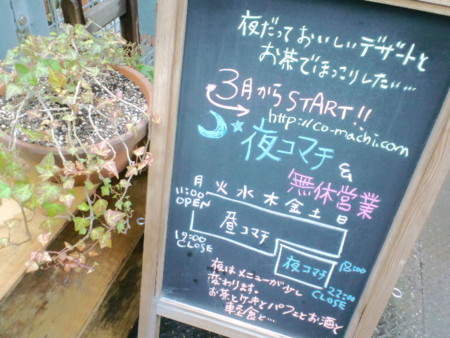 夜だっておいしいデザートと
お茶でほっこりしたい…
3月からSTART!!
http://co-machi.com
夜コマチ &
無休営業
月火水木金土日
11:00
OPEN
昼コマチ
19:00
CLOSE
夜コマチ
18:00
22:00
CLOSE
夜はメニューが少し
変わります。
お茶とケーキとパフェとお酒と
軽食と…